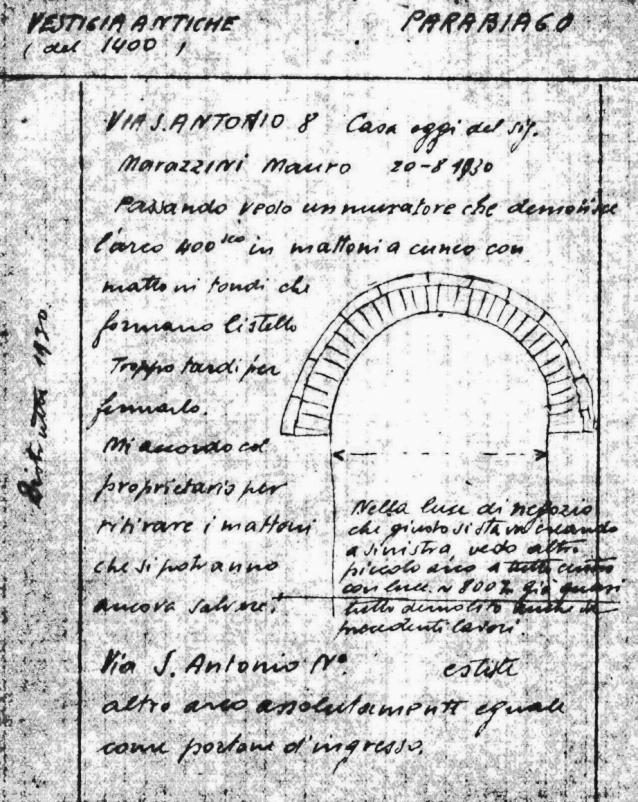 VESTIGIA ANTICHE
(del 1400)
PARABIAGO
VIA S. ANTONIO 8 Casa oggi del sig.
Marazzini Mauro 20-8 1930
Passando vedo un muratore che demolisce
l'arco 400sco in mattoni a cuneo con
mattoni tondi che
formano listello
Troppo tardi per
fermarlo.
Mi accordo col
proprietario per
ritirare i mattoni
che si potranno
ancora salvare.
Nella luce di negozio
che giusto si sta creando
a sinistra, vedo altro
piccolo arco a tutto
con luce 800 già quasi
tutto demolito anche
precedenti lavori.
Via S. Antonio N° esiste
altro arco assolutamente eguale
come portone d'ingresso.
1930.